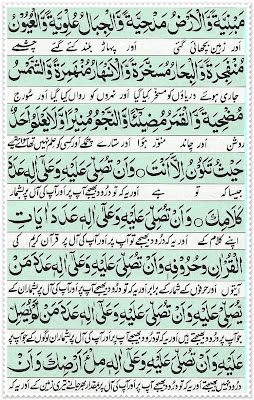 مَبْنِيَّةً وَّالْاَرْضُ مَدْحِيَّةً وَّالْجِبَالُ عُلْوِيَّةً وَّالْعُيُوْنُ
اور زمین بچھائی گئی اور پہاڑ بلند کئے گئے چشمے
مُنْفَجِرَةً وَّالْبِحَارُ مُسَخَّرَةً وَّالْاَنْهَارُ مُنْهَمِرَةً وَّالشَّمْسُ
جاری ہوئے دریاؤں کو مسخر کیا گیا اور نہروں کو رواں کیا گیا اور سورج
مُضْحِيَةً وَّالْقَمَرُ مُضِيْئًا وَّالنَّجْمُ مُنِيْرًا وَّلَا يَعْلَمُ اَحَدٌ
روشن اور چاند منور ہوا اور ستارے چمکے اور کسی کو علم نہیں تھا
حَيْثُ تَكُوْنُ اِلَّا اَنْتَ ○ وَاَنْ تُصَلِّيَ عَلَيْهِ وَعَلٰى اٰلِهٖ عَدَدَ
جیسا کہ تو ہے اور یہ کہ تو درود بھیجے آپ پر اور آپ کی آل پر
كَلَامِكَ ○ وَاَنْ تُصَلِّيَ عَلَيْهِ وَعَلٰى اٰلِهٖ عَدَدَ اٰيَاتِ
اپنے کلام کے اور یہ کہ تو درود بھیجے آپ پر اور آپ کی آل پر قرآن کریم کی
الْقُرْاٰنِ وَحُرُوْفِهٖ وَاَنْ تُصَلِّيَ عَلَيْهِ وَعَلٰى اٰلِهٖ عَدَدَ مَنْ
آیتوں اور حرفوں کے شمار کے برابر اور یہ کہ تو درود بھیجے آپ پر اور آپ کی آل پر بشمار ان کے
يُّصَلِّيْ عَلَيْهِ وَاَنْ تُصَلِّيَ عَلَيْهِ وَعَلٰى اٰلِهٖ عَدَدَ مَنْ لَّمْ يُصَلِّ
جو آپ پر درود بھیجتے ہیں اور یہ کہ تو درود بھیجے آپ پر اور آپ کی آل پر بشمار ان لوگوں کے جو آپ پر
عَلَيْهِ وَاَنْ تُصَلِّيَ عَلَيْهِ وَعَلٰى اٰلِهٖ مِلْءَ اَرْضِكَ وَاَنْ
درود نہیں بھیجتے اور یہ کہ تو درود بھیجے آپ پر اور آپ کی آل پر بمقدار بھر جانے تیری زمین کے اور یہ کہ